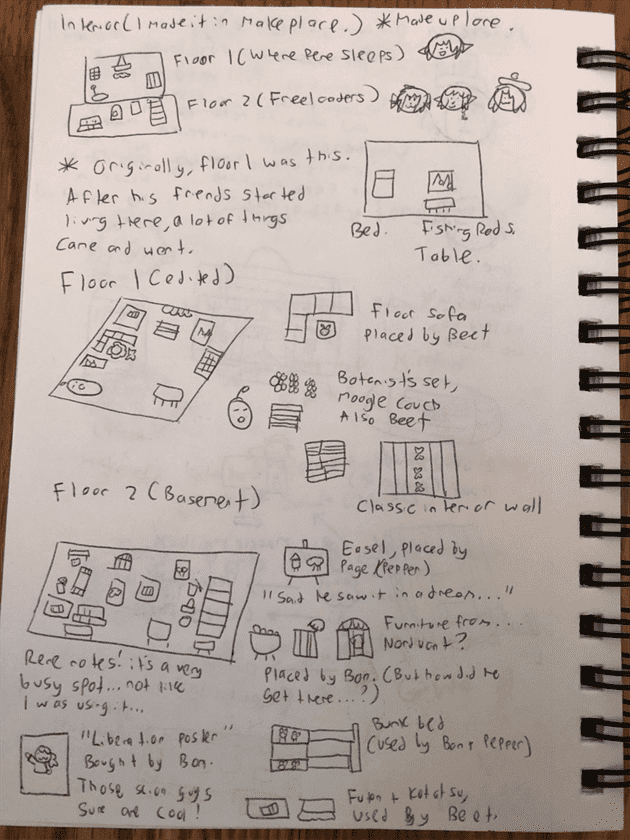 Interior (I made it in makeplace.) *Made up lore.
Floor 1 (Where Rere sleeps)
Floor 2 (Freeloaders)
* Originally, floor 1 was this.
After his friends started
living there, a lot of things
came and went.
Bed. Fishing Rods.
Table.
Floor 1 (edited)
Floor sofa
placed by Beet
Botanist's set,
Moogle couch
Also Beet
Classic interior wall
Floor 2 (Basement)
Easel, placed by
Page (Pepper)
"Said he saw it in a dream..."
Furniture from...
Nordvant?
Placed by Bon. (But how did he
get there...?)
Rere notes! it's a very
busy spot... not like
I was using it...
"Liberation poster"
Bought by Bon.
Those scion guys
sure are cool!
Bunk bed
(used by Bon + Pepper)
Futon + Kotatsu,
used by Beet.